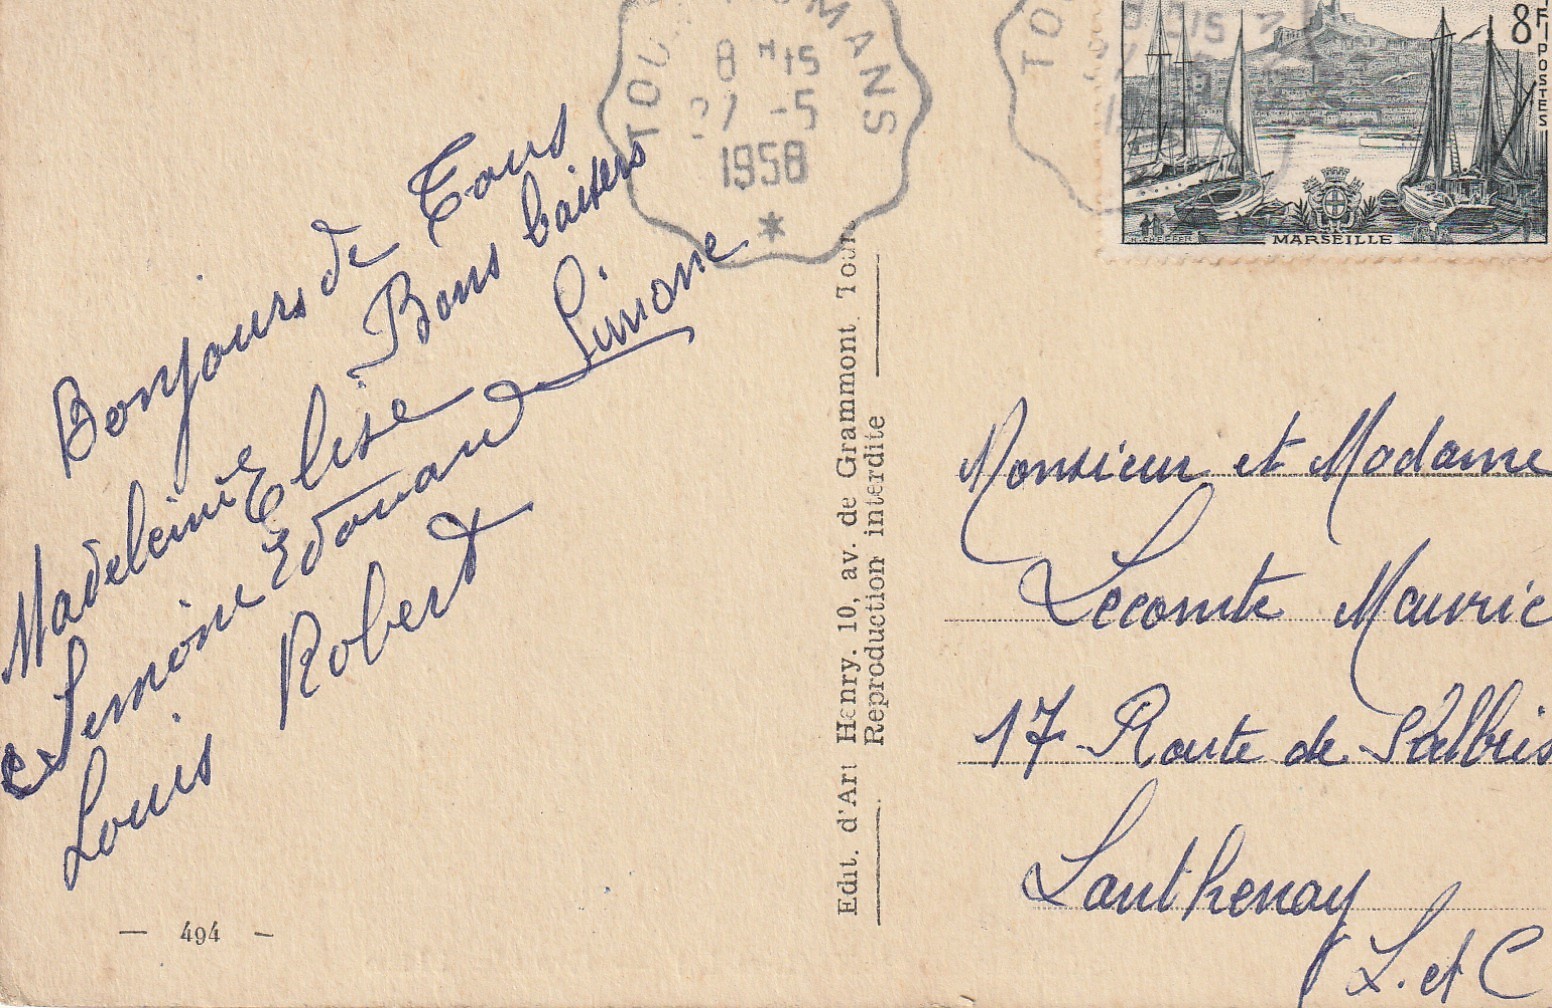 Bonjours de Tous
Bons baisers
Madeleine Elise
Simone
Simone Edouard
Louis Robert
- 494 -
Edit. d'Art Henry. 10, av. de Grammont Tour
Reproduction interdite
TOU MANS
8 H 15
27 -5
1958
TOU
8F
POSTES
MARSEILLE
Monsieur et Madame
Lecomte Mauric
17 Route de Salbris
Lanthenay
L. et C